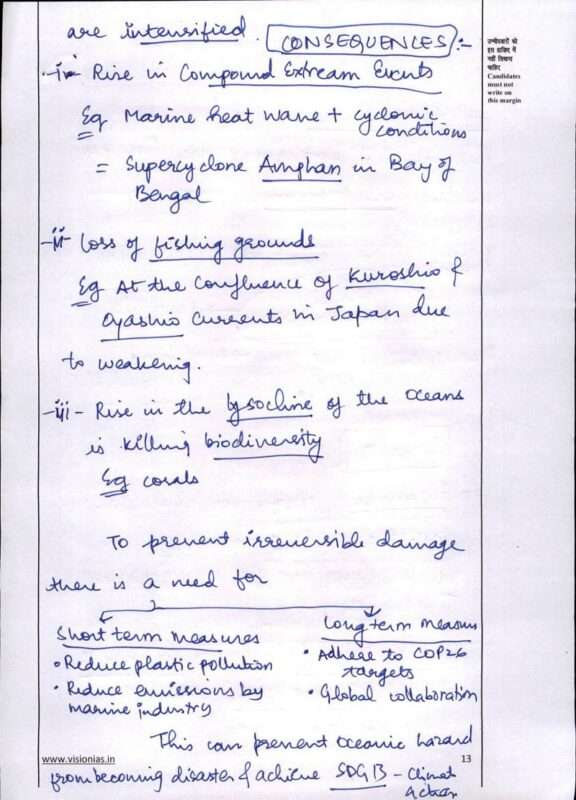 are intensified. CONSEQUENCES:-
-i- Rise in Compound Extream Events
Eg Marine heat wave + cyclonic
conditions
= Supercyclone Amphan in Bay of
Bengal
-ii- Loss of fishing grounds
Eg At the confluence of Kuroshio &
Oyashio currents in Japan due
to weakening.
-iii- Rise in the lysocline of the oceans
is killing biodiversity
Eg corals
To prevent irreversible damage
there is a need for
Short term measures
• Reduce plastic pollution
• Reduce emissions by
marine industry
Long term measures
• Adhere to COP26
targets
• Global collaboration
This can prevent oceanic hazard
from becoming disaster & achieve SDG 13 - Climate
Action
उम्मीदवारों को
इस हाशिए में
नहीं लिखना
चाहिए
Candidates
must not
write on
this margin
www.visionias.in
13